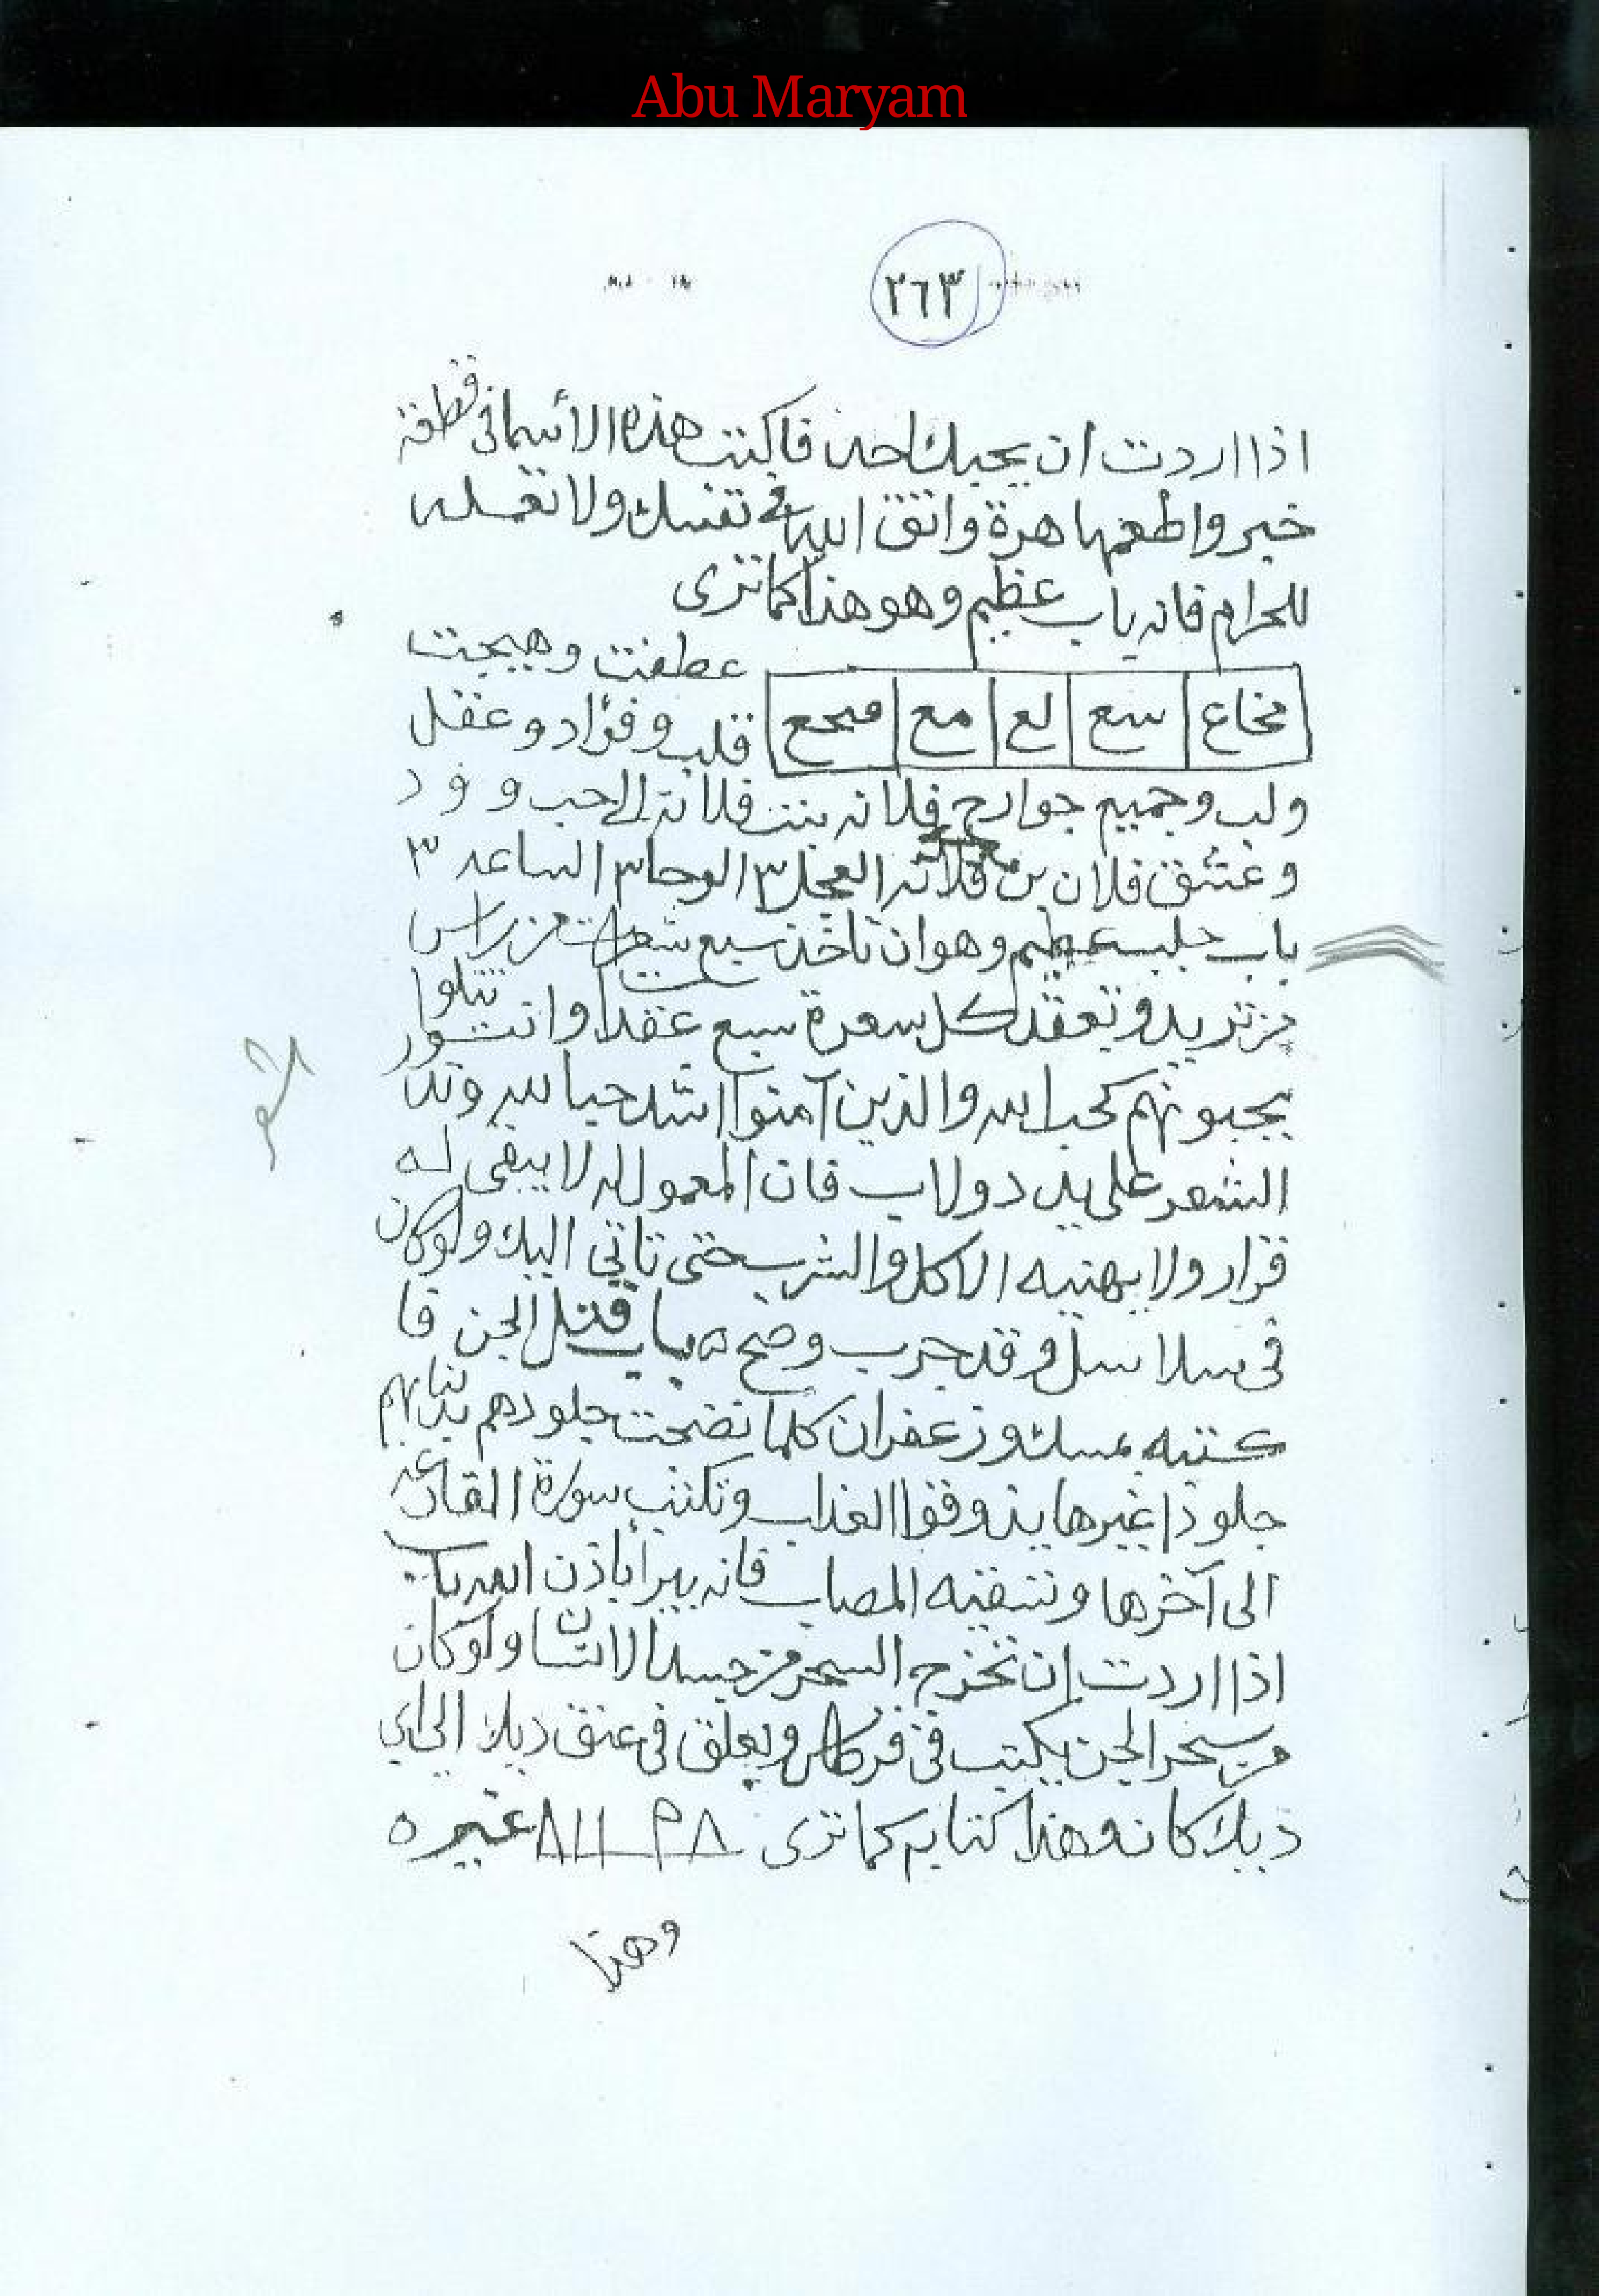 Abu Maryam
٢٦٣
اذا اردت ان يحبك احد فاكتب هذه الأسما فى قطعة
خبز واطعمها هرة واتق الله فى نفسك ولا تعمله
للحرام فانه باب عظيم وهو هذا كما ترى
عطفت وهيجت
سع لع مع
قلب وفؤاد وعقل
ولب وجميع جوارح فلانه بنت فلانة الى حب وود
وعشق فلان بن فلانه العجل ٣ الوحا ٣ الساعه ٣
باب جلب عظيم وهو ان تاخذ سبع شعرات من راس
من تريد وتعقد كل سعرة سبع عقد وانت تتلوا
يحبونهم كحب الله والذين آمنوا اشد حبا لله
الشعر على يد دولاب فان المعمول له لا يبقى له
قرار ولا يهنيه الاكل والشرب حتى تاتى اليك ولو كان
فى سلاسل وقد جرب وصح ه باب قتل الجن فا
كتبه بمسك وزعفران كلما نضجت جلودهم بدلناهم
جلودا غيرها يذوقوا العذاب وتكتب سورة القارعه
الى آخرها وتسقيه المصاب فانه يبرأ باذن الله باب
اذا اردت ان تخرج السحر من جسد الانسان ولو كان
من سحر الجن يكتب فى قرطاس ويعلق فى عنق ديك الى اى
ديك كان وهذا كتابه كما ترى غيره
وهذا